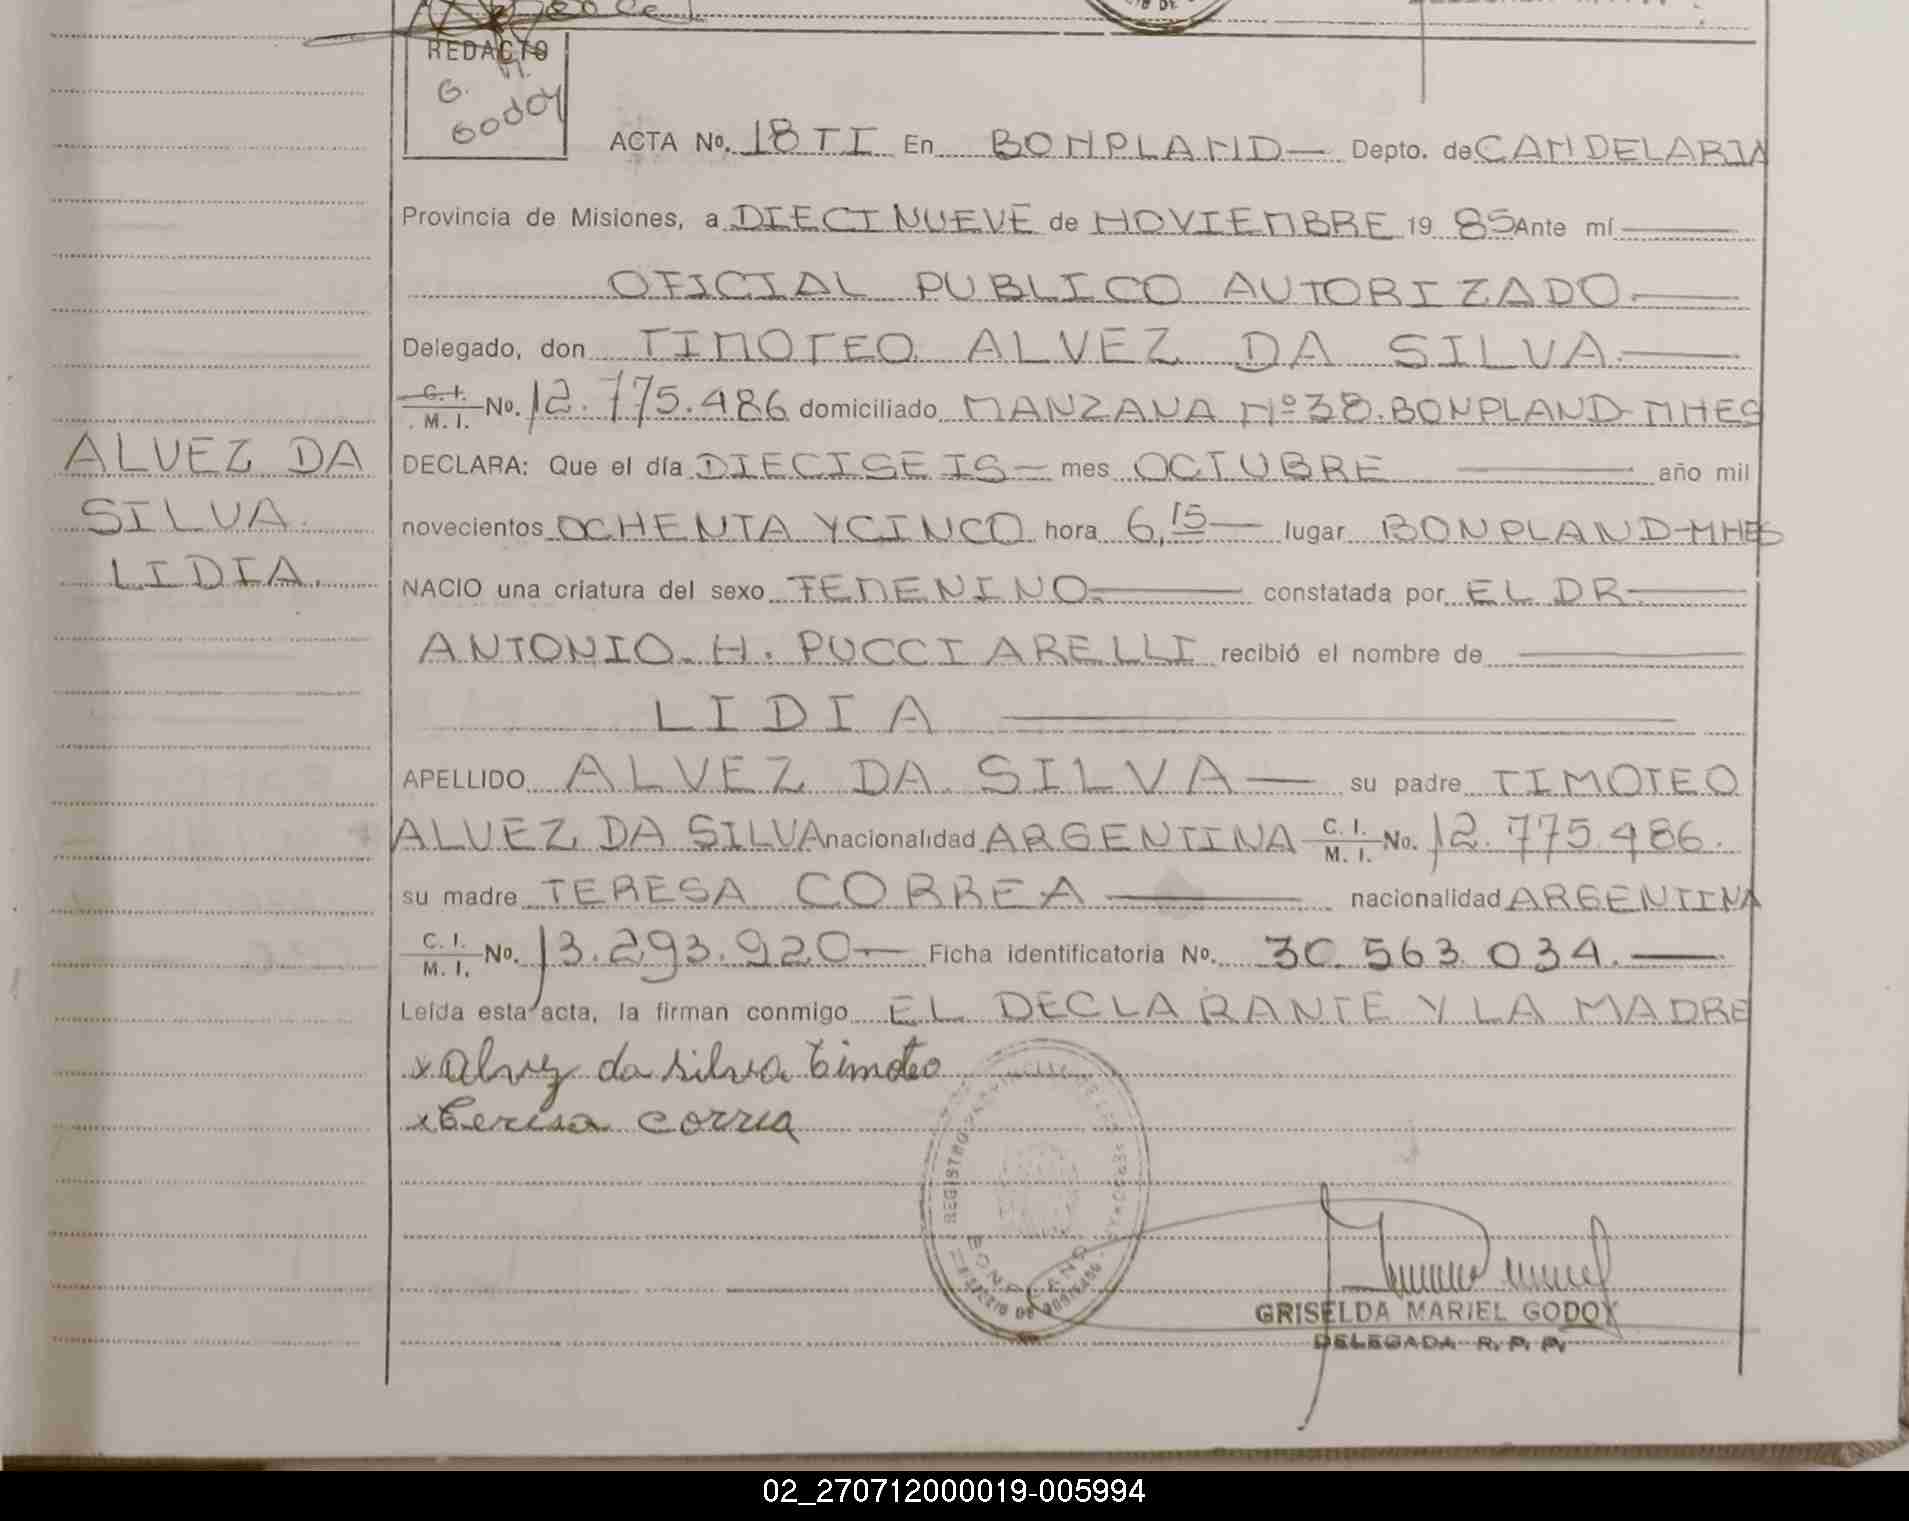 REDACTO
G.
GODOY
ACTA No. 18 TI En BONPLAND— Depto. de CANDELARIA
Provincia de Misiones, a DIECINUEVE de NOVIEMBRE 19 85 Ante mí
OFICIAL PUBLICO AUTORIZADO
Delegado, don TIMOTEO ALVEZ DA SILVA
C. I. / M. I. No. 12.775.486 domiciliado MANZANA Nº 38. BONPLAND-MNES
ALVEZ DA
SILVA.
LIDIA.
DECLARA: Que el día DIECISEIS— mes OCTUBRE año mil
novecientos OCHENTA Y CINCO hora 6,15— lugar BONPLAND-MNES
NACIO una criatura del sexo FEMENINO constatada por EL DR
ANTONIO. H. PUCCIARELLI recibió el nombre de
LIDIA
APELLIDO ALVEZ DA SILVA— su padre TIMOTEO
ALVEZ DA SILVA nacionalidad ARGENTINA C. I. / M. I. No. 12.775.486.
su madre TERESA CORREA nacionalidad ARGENTINA
C. I. / M. I. No. 13.293.920— Ficha identificatoria No. 30.563.034.—
Leída esta acta, la firman conmigo EL DECLARANTE Y LA MADRE
x Alvez da silva timoteo
x teresa correa
REGISTRO PROVINCIAL DE LAS PERSONAS
BONPLAND
GRISELDA MARIEL GODOY
DELEGADA R. P. P.
02_270712000019-005994